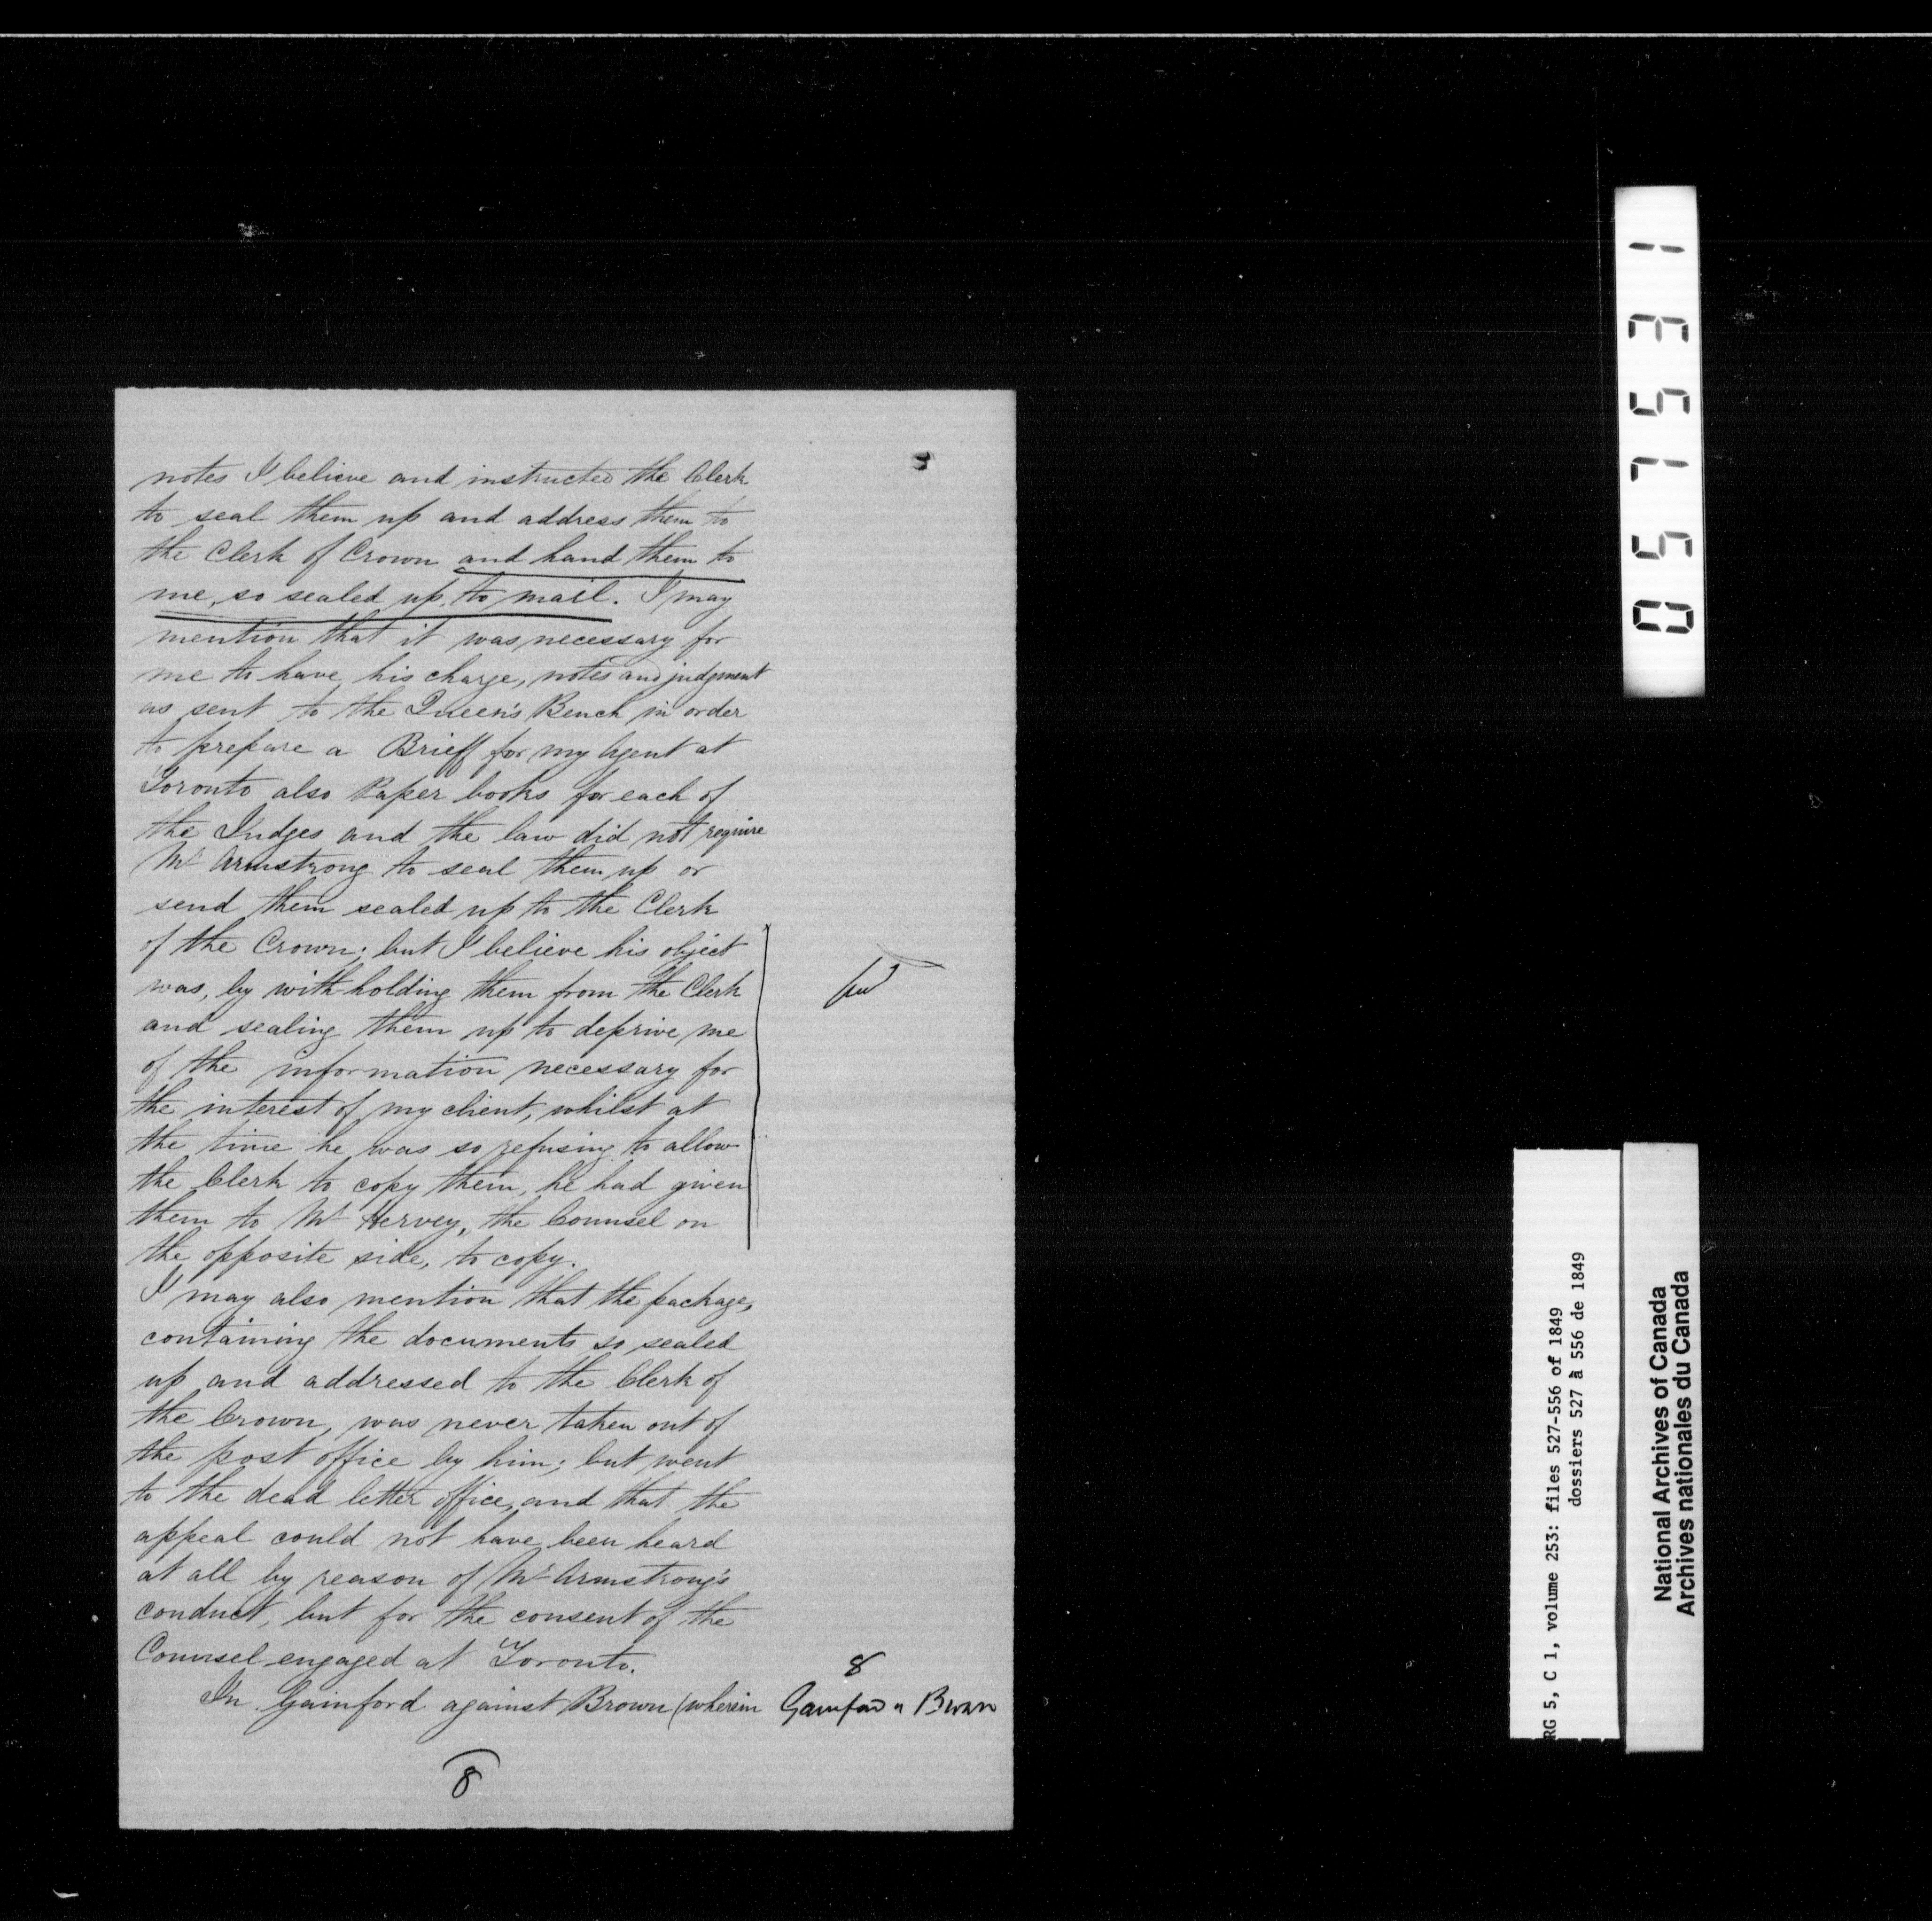 notes I believe and instructed the Clerk
to seal them up and address them to
the Clerk of Crown and hand them to
me, so sealed up, to mail. I may
mention that it was necessary for
me to have his charge, notes and judgment
as sent to the Queen's Bench in order
to prepare a Brieff for my Agent at
Toronto also Paper books for each of
the Judges and the law did not require
Mr Armstrong to seal them up or
send them sealed up to the Clerk
of the Crown; but I believe his object
was, by withholding them from the Clerk
and sealing them up to deprive me
of the information necessary for
the interest of my client, whilst at
the time he was so refusing to allow
the Clerk to copy them, he had given
them to Mr Hervey, the Counsel on
the opposite side, to copy.
I may also mention that the package,
containing the documents so sealed
up and addressed to the Clerk of
the Crown, was never taken out of
the post office by him; but went
to the dead letter office, and that the
appeal could not have been heard
at all by reason of Mr Armstrong's
conduct, but for the consent of the
Counsel engaged at Toronto.
In Gainford against Brown (wherein
8
Gainford Brown
8
051531
RG 5, C 1, volume 253: files 527-556 of 1849
dossiers 527 à 556 de 1849
National Archives of Canada
Archives nationales du Canada